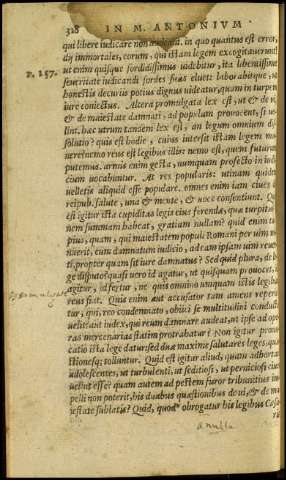 328 IN M. ANTONIUM
qui libere iudicare non audeant. in quo quantus est error,
dij immortales, eorum, qui istam legem excogitauerunt?
ut enim quisque sordidissimus uidebitur, ita libenissime
seueritate iudicandi sordes suas eluet: laborabitque, ut
honestis decurijs potius dignus uideatur, quam in turpem
P. 257.
iure coniectus. Altera promulgata lex est, ut & de ui,
& de maiestate damnati, ad populum prouocent, si ue-
lint. hæc utrum tandem lex est, an legum omnium dis-
solutio? quis est hodie, cuius intersit istam legem
nemo reus est legibus illis: nemo est, quem futurum
putemus. armis enim gesta, numquam profecto in iudi-
cium uocabuntur. At res popularis: utinam quidem
uelletis aliquid esse populare. omnes enim iam ciues de
reip. salute, una & mente, & uoce consentiunt. Quæ
est igitur ista cupiditas legis eius ferendæ, quæ turpitudi-
nem summam habeat, gratiam nullam? quid enim
pius, quam, qui maiestatem populi Romani per uim mi-
nuerit, eum damnatum iudicio, ad eam ipsam uim reuer-
ti, propter quam sit iure damnatus? Sed quid plura, de le-
ge disputo? quasi uero id agatur, ut quisquam prouocet. id
agitur, id fertur, ne quis omnino umquam istis legibus
reus fiat. Quis enim aut accusator tam amens reperie-
tur, qui, reo condemnato, obijci se multitudini conductæ
uelit: aut iudex, qui reum damnare audeat, ut ipse ad ope-
ras mercenarias statim protrahatur? Non igitur prouo-
catio ista lege datur: sed duæ maxime salutares leges, quæ
stionesq; tolluntur. Quid est igitur aliud, quam adhortari
adolescentes, ut turbulenti, ut seditiosi, ut perniciosi ciues
uelint esse? quam autem ad pestem furor tribunitius im-
pelli non poterit, his duabus quæstionibus de ui, & de ma-
iestate sublatis? Quid, quod obrogatur his legibus Cæsa-